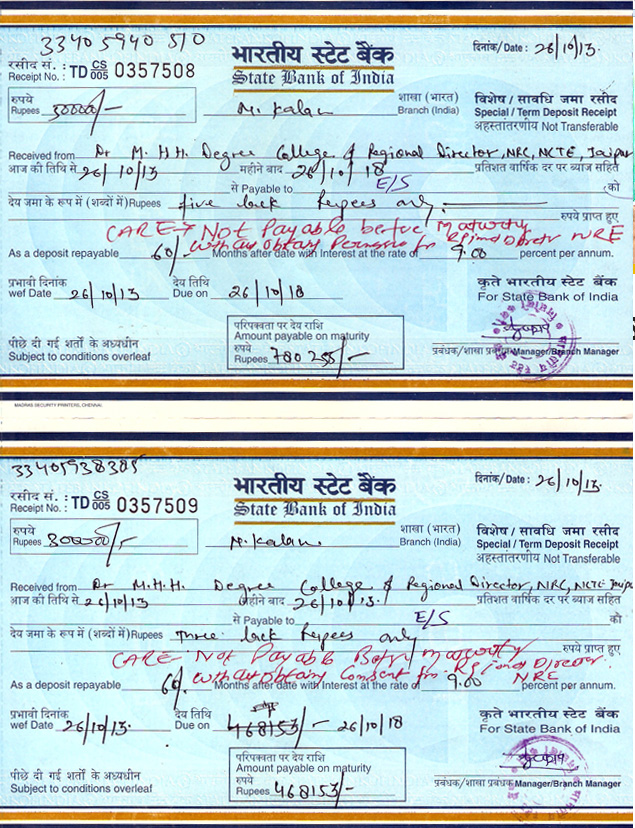 33405940 510
भारतीय स्टेट बैंक
State Bank of India
दिनांक/Date : 26/10/13.
रसीद सं. :
Receipt No. : TD CS 005 0357508
रुपये
Rupees 50000/-
M. Kalan
शाखा (भारत)
Branch (India)
विशेष / सावधि जमा रसीद
Special / Term Deposit Receipt
अहस्तांतरणीय Not Transferable
Received from Dr M. H H. Degree College & Regional Director, NRC, NCTE, Jaipur
आज की तिथि से 26/10/13 महीने बाद 26/10/18 प्रतिशत वार्षिक दर पर ब्याज सहित
से Payable to E/S को
देय जमा के रूप में (शब्दों में) Rupees five lack Rupees only रुपये प्राप्त हुए
CARE → Not Payable before maturity
without obtain
As a deposit repayable 60/- Months after date with Interest at the rate of 9.00 percent per annum.
प्रभावी दिनांक
wef Date 26/10/13
देय तिथि
Due on 26/10/18
कृते भारतीय स्टेट बैंक
For State Bank of India
पीछे दी गई शर्तों के अध्यधीन
Subject to conditions overleaf
परिपक्वता पर देय राशि
Amount payable on maturity
रुपये
Rupees 780255/-
प्रबंधक/शाखा प्रबंधक Manager/Branch Manager
MADRAS SECURITY PRINTERS, CHENNAI.
33405938305
भारतीय स्टेट बैंक
State Bank of India
दिनांक/Date : 26/10/13.
रसीद सं. :
Receipt No. : TD CS 005 0357509
रुपये
Rupees 300000/-
M. Kalan
शाखा (भारत)
Branch (India)
विशेष / सावधि जमा रसीद
Special / Term Deposit Receipt
अहस्तांतरणीय Not Transferable
Received from Dr M.H.H. Degree College & Regional Director, NRC, NCTE Jaipu
आज की तिथि से 26/10/13 महीने बाद 26/10/13. प्रतिशत वार्षिक दर पर ब्याज सहित
से Payable to E/S को
देय जमा के रूप में (शब्दों में) Rupees Three lack Rupees only रुपये प्राप्त हुए
CARE - Not Payable maturity
without obtain Consent for Regional Director NRE
As a deposit repayable 60/- Months after date with Interest at the rate of 9.00 percent per annum.
प्रभावी दिनांक
wef Date 26/10/13.
देय तिथि
Due on 468153/- 26/10/18
कृते भारतीय स्टेट बैंक
For State Bank of India
पीछे दी गई शर्तों के अध्यधीन
Subject to conditions overleaf
परिपक्वता पर देय राशि
Amount payable on maturity
रुपये
Rupees 468153/-
प्रबंधक/शाखा प्रबंधक Manager/Branch Manager